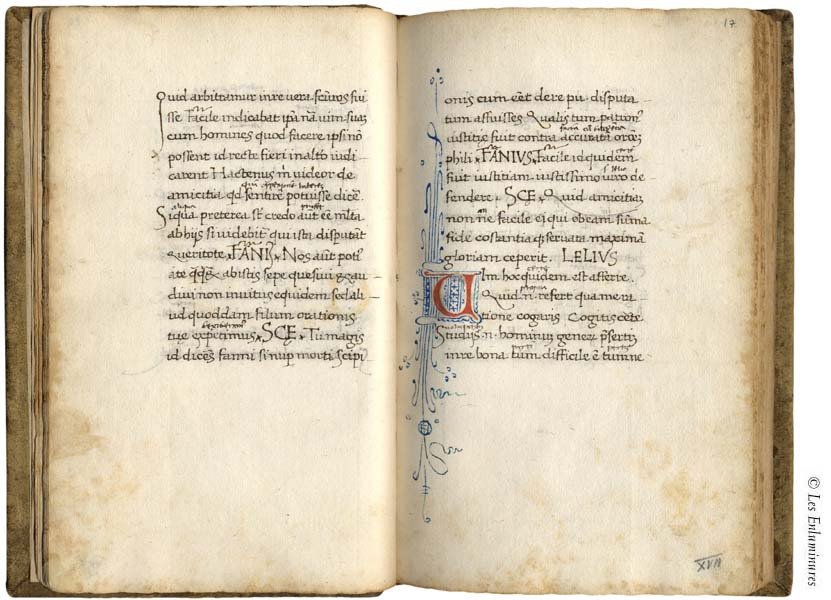 Quid arbitramur in re vera fcturos fui
sse Facile indicabat ipa nã vim suaȝ
cum homines quod facere ipsi nõ
possent id recte fieri in alto iudi
carent Hactenus m videor de
amicitia qd sentire potuisse dicẽ.
Siqua preterea st credo aut eẽ mlta
ab hijs si videbit qui ista disputãt
queritote FANIS Nos aut poti
ate abistis sepe quesivi & gau
divi non invitus equidem sed ali
ud quoddam filum orationis
tue expetimus SCE Tu magis
id dices fanni si nup morti scipi
17
onis cum eet de re pu disputa
tum affuisses Qualis tum patron
iustitie fuit contra accuratã oroẽ
phili FANIVS Facile id quidem
fuit iustitiam iustissimo viro de
fendere SCE Quid amicitiaȝ
non ne facile ei qui ob eam sũma
fide costantia q servata maximã
gloriam ceperit. LELIVS
VIm hoc quidem est afferre.
Quid n refert qua me ra
tione cogatis Cogitis
Studiis n hominu psertis
in re bona tum difficile ẽ tum ne
XVII
© Les Enluminures